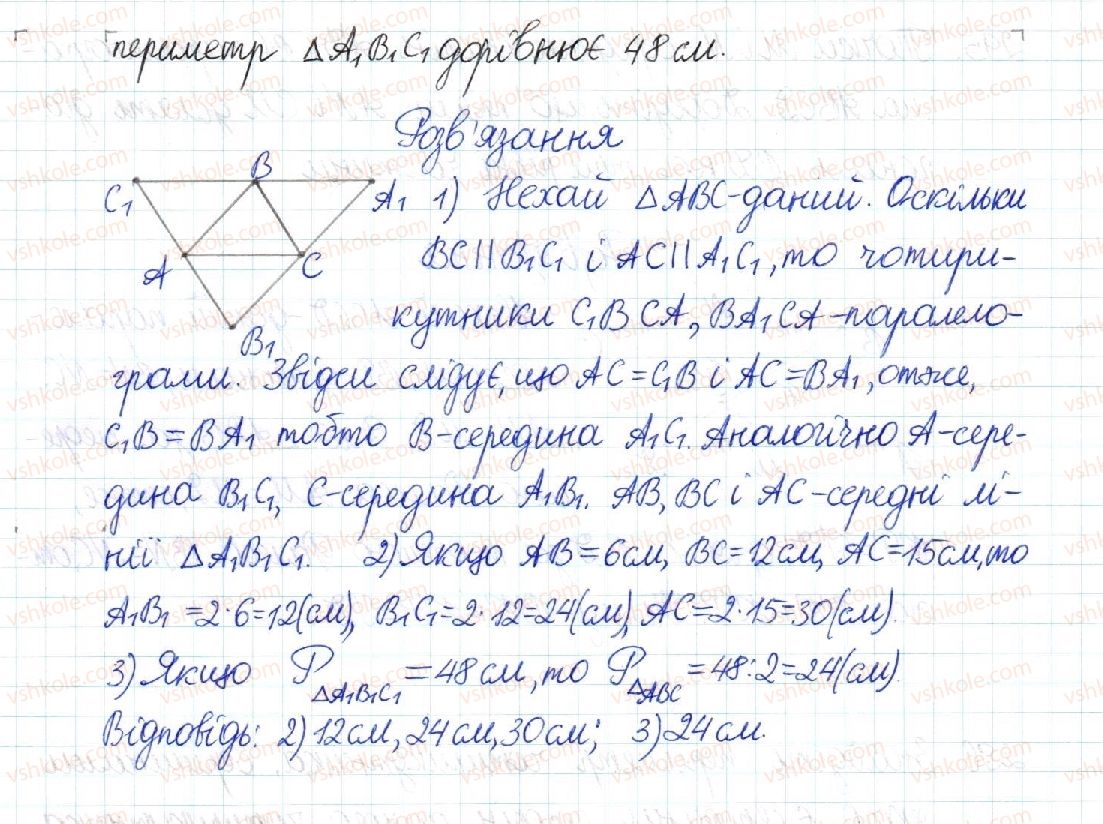 периметр △A₁B₁C₁ дорівнює 48 см.
Розв'язання
C₁ B A₁
A C
B₁
1) Нехай △ABC-даний. Оскільки
BC || B₁C₁ і AC || A₁C₁, то чотири-
кутники C₁BCA, BA₁CA-паралело-
грами. Звідси слідує, що AC=C₁B і AC=BA₁, отже,
C₁B=BA₁ тобто B-середина A₁C₁. Аналогічно A-сере-
дина B₁C₁, C-середина A₁B₁. AB, BC і AC-середні лі-
нії △A₁B₁C₁. 2) Якщо AB=6см, BC=12см, AC=15см, то
A₁B₁=2·6=12(см), B₁C₁=2·12=24(см), AC=2·15=30(см).
3) Якщо P△A₁B₁C₁=48см, то P△ABC=48:2=24(см).
Відповідь: 2) 12см, 24см, 30см; 3) 24см.